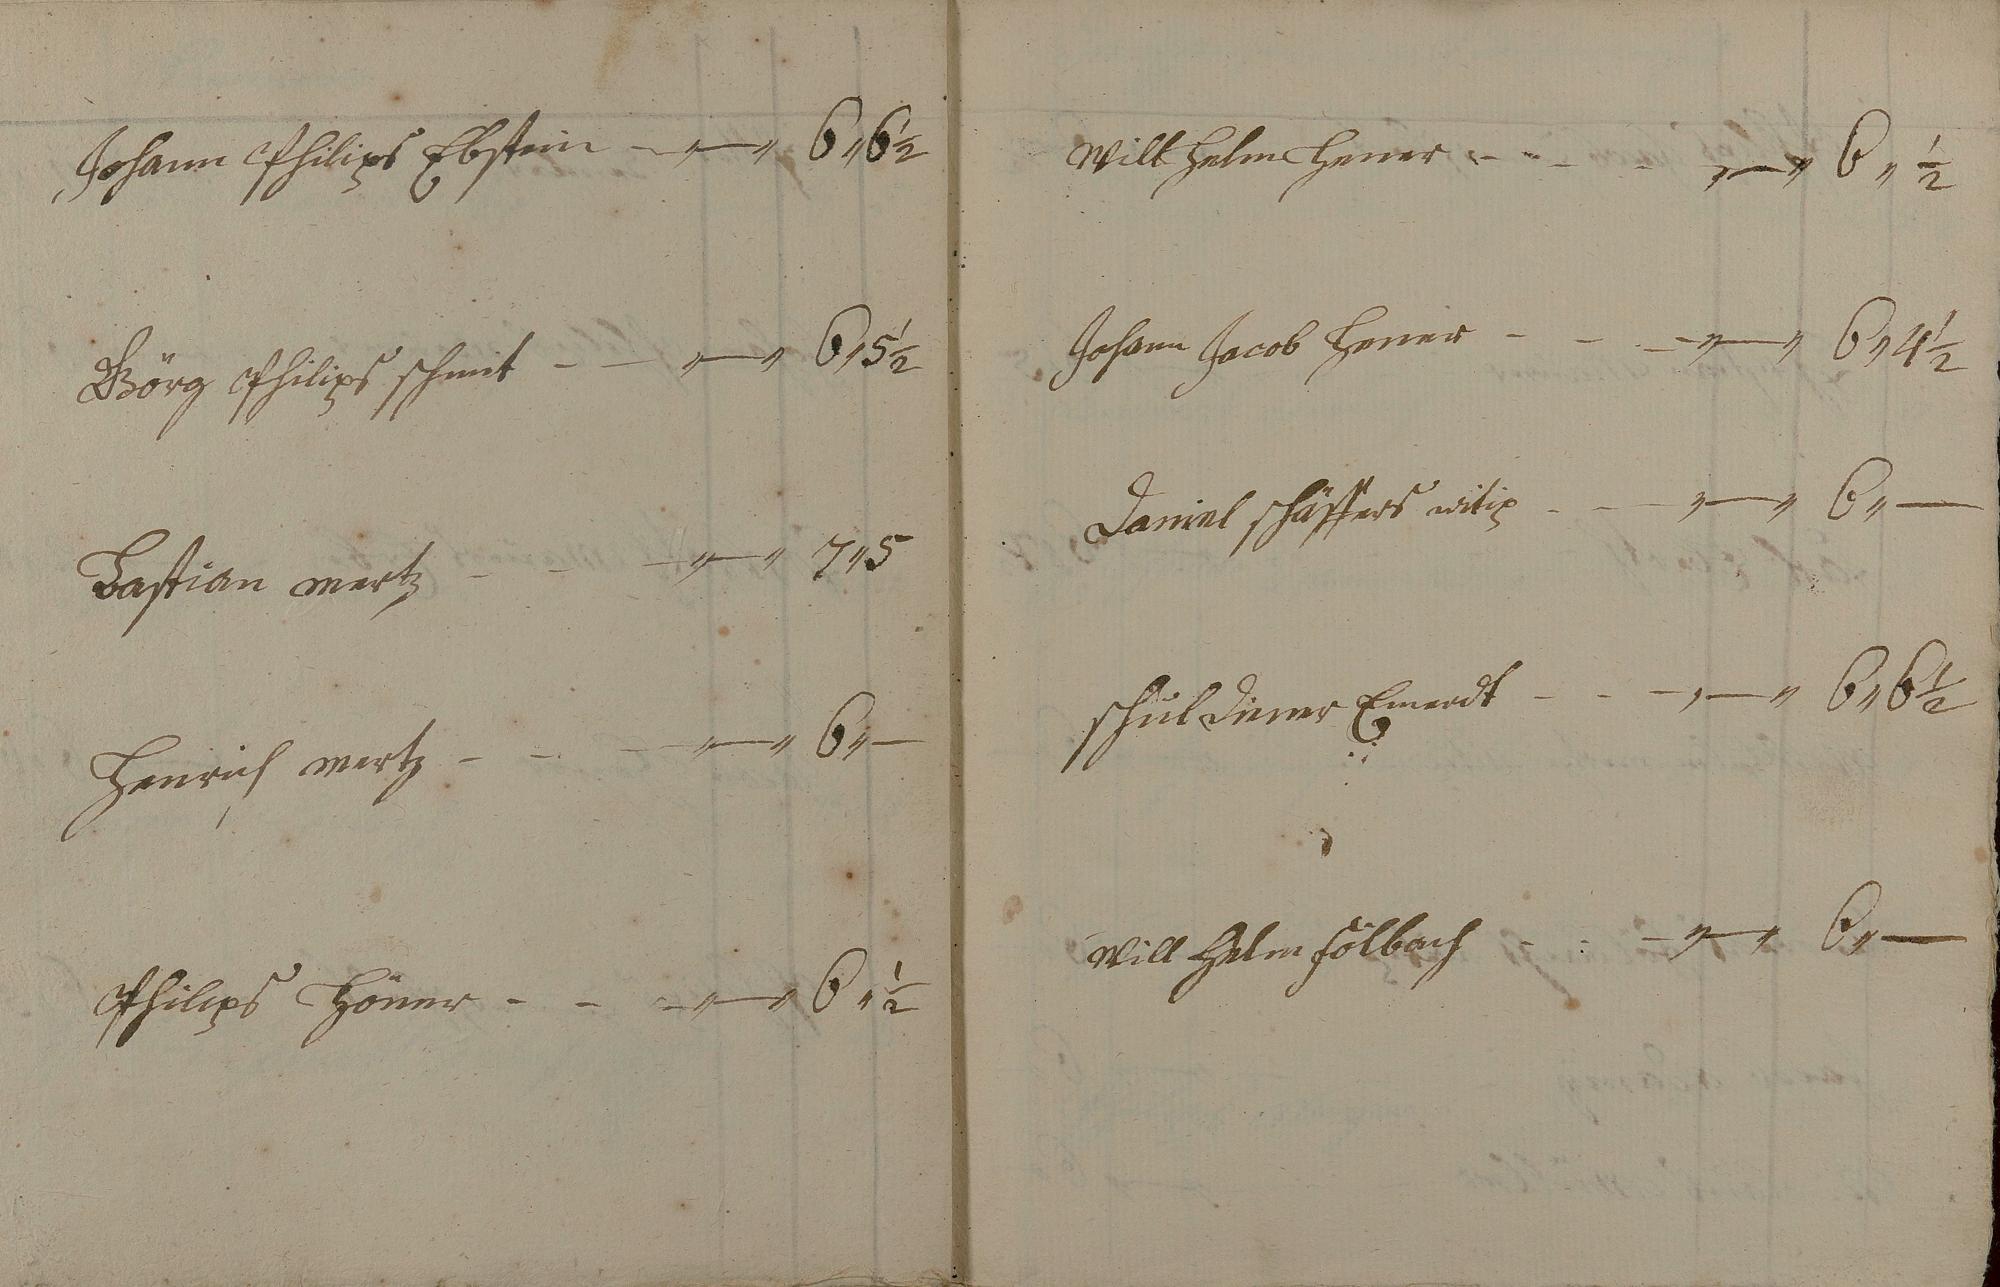 Johann Philips Ebstein - - " — " 6 " 6 ½
Görg Philips schmit - - " — " 6 " 5 ½
Bastian mertz - - - " — " 7 " 5
Henrich mertz - - - " — " 6 " —
Philips Höner - - - " — " 6 " ½
Willhelm Hener - - - - " — " 6 " ½
Johann Jacob Hener - - - " — " 6 " 4 ½
Daniel schäffers witib - - " — " 6 " —
schul diener Emerdt - - - " — " 6 " 6 ½
Will Helm fölbach - : - " — " 6 " —